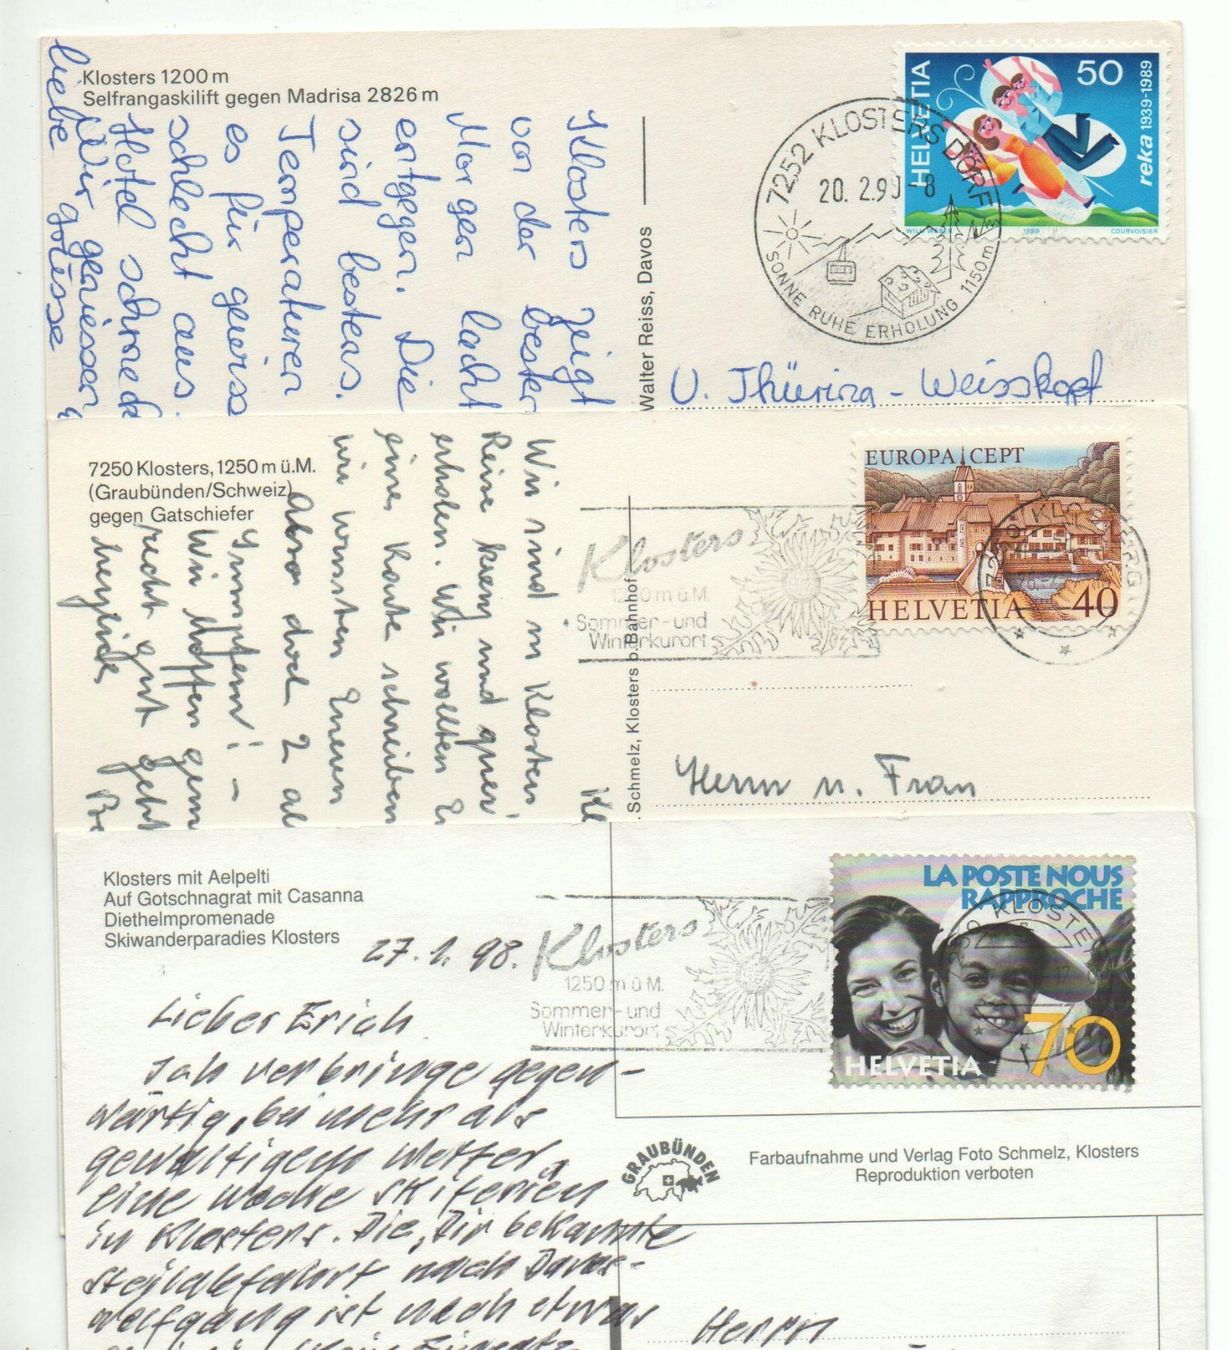 Klosters 1200 m
Selfrangaskilift gegen Madrisa 2826 m
Klosters zeigt
von der besten
Morgen lacht
entgegen. Die
sind bestens.
Temperaturen
es für gewiss
schlecht aus.
Hotel schmeck
Wir geniessen
liebe Grüsse
Walter Reiss, Davos
HELVETIA
50
reka 1939-1989
WILLI WEBER 1989 COURVOISIER
7252 KLOSTERS DORF
20. 2.90-8
SONNE RUHE ERHOLUNG 1150 m
U. Thüring - Weisskopf
7250 Klosters, 1250 m ü.M.
(Graubünden/Schweiz)
gegen Gatschiefer
Wir sind in Klosters
Reise kreuz und quer
erholen. Wir wollten
eine Karte schreiben
wir wussten Eueren
Also doch 2 al
Wir hoffen gern
recht gut geht
Schmelz, Klosters b.Bahnhof
Klosters
1250 m ü.M.
Sommer- und
Winterkurort
EUROPA CEPT
HELVETIA 40
Herrn u. Frau
Klosters mit Aelpelti
Auf Gotschnagrat mit Casanna
Diethelmpromenade
Skiwanderparadies Klosters
27.1.98.
Klosters
1250 m ü M.
Sommer- und
Winterkurort
LA POSTE NOUS
RAPPROCHE
KLOSTERS
HELVETIA 70
Lieber Erich
Ich verbringe gegen-
wärtig, bei mehr als
gewaltigem Wetter,
eine Woche Skiferien
in Klosters. Die, Dir bekannte
Steilabfahrt nach Davos-
Wolfgang ist noch etwas
GRAUBÜNDEN
Farbaufnahme und Verlag Foto Schmelz, Klosters
Reproduktion verboten
Herrn